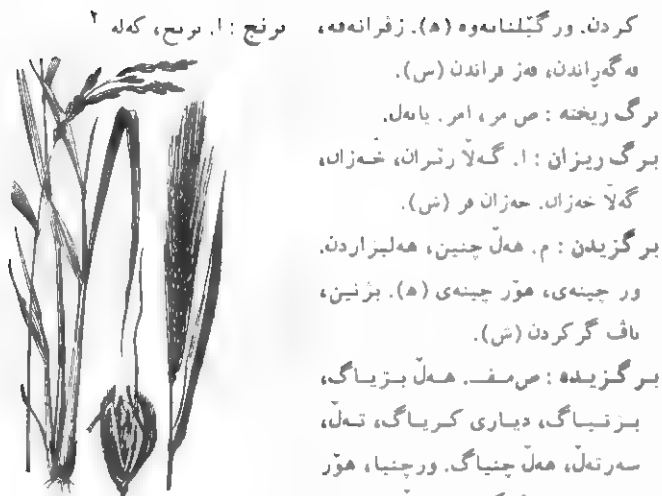 کردن. ور گێلنانەوە (ه). زفرانەفە،
فەگەڕاندن، فەز فراندن (س).
برگ ریخته : ص مر، امر. یانەل.
برگ ریزان : ا. گەڵا رێران، خەزان،
گەڵا خەزان. خەزان فر (ش).
برگزیدن : م. هەڵ چنین، هەلبزاردن.
ور چینەی، هۆر چینەی (ه). بژنین،
ناڤ گرکردن (ش).
برگزیده : ص‌مف. هەڵ بزیاگ،
بژتیاگ، دیاری کریاگ، تەڵ،
سەرتەڵ، هەڵ چنیاگ. ورچنیا، هۆر
برنج : ا. برنج، کەلە ۲